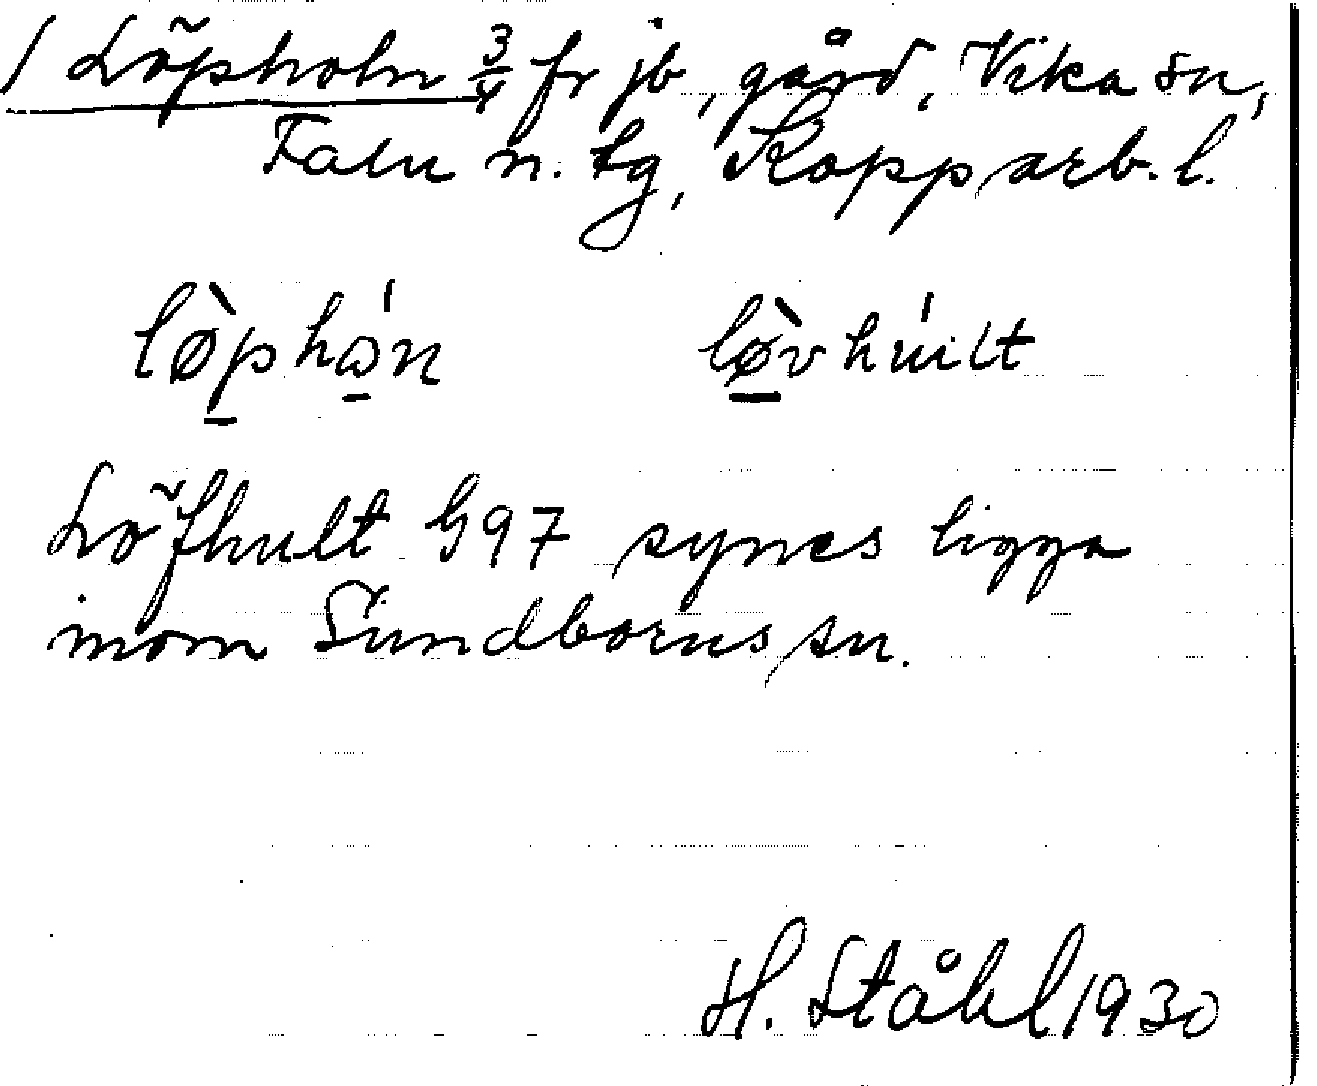 / Löpholn 3/4 fr jb, gård, Vika sn,
Falu n. tg, Kopparb. l.
lø̀phɷ́n lø̀vhúlt
Löfhult G97 synes ligga
inom Sundborns sn.
H. Ståhl 1930